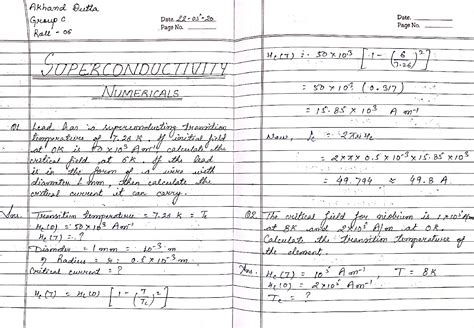 Akhand Dutta
Group C
Roll - 06
Date 22-05-20
Page No.
SUPERCONDUCTIVITY
NUMERICALS
Q1. Lead has a superconducting transition
temperature of 7.26 K. If initial field
at 0K is 50 x 10³ Am⁻¹, calculate the
critical field at 6K. If the lead
is in the form of a wire with
diameter 1 mm, then calculate the
critical current it can carry.
Ans. Transition temperature = 7.26 K = Tc
Hc(0) = 50 x 10³ Am⁻¹
Hc(T) = ?
Diameter = 1 mm = 10⁻³ m
Radius = r = 0.5 x 10⁻³ m
Critical current = ?
Hc(T) = Hc(0) [1 - (T/Tc)²]
Date.
Page No.
Hc(T) = 50 x 10³ [1 - (6/7.26)²]
= 50 x 10³ (0.317)
= 15.85 x 10³ A m⁻¹
Now, Ic = 2πrHc
= 2 x π x 0.5 x 10⁻³ x 15.85 x 10³
= 49.794 ≈ 49.8 A
Q2. The critical field for niobium is 1 x 10⁵ A/m
at 8K and 2 x 10⁵ A/m at 0K.
Calculate the transition temperature of
the element.
Ans. Hc(T) = 10⁵ A m⁻¹, T = 8K
Hc(0) = 2 x 10⁵ A m⁻¹
Tc = ?